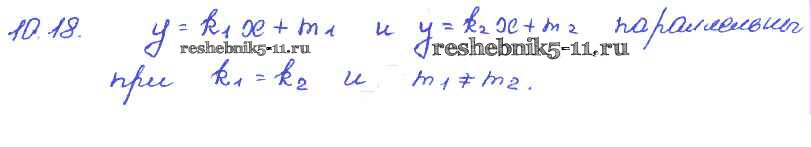 10.18. y = k₁x + m₁ и y = k₂x + m₂ параллельны
reshebnik5-11.ru reshebnik5-11.ru
при k₁ = k₂ и m₁ ≠ m₂.